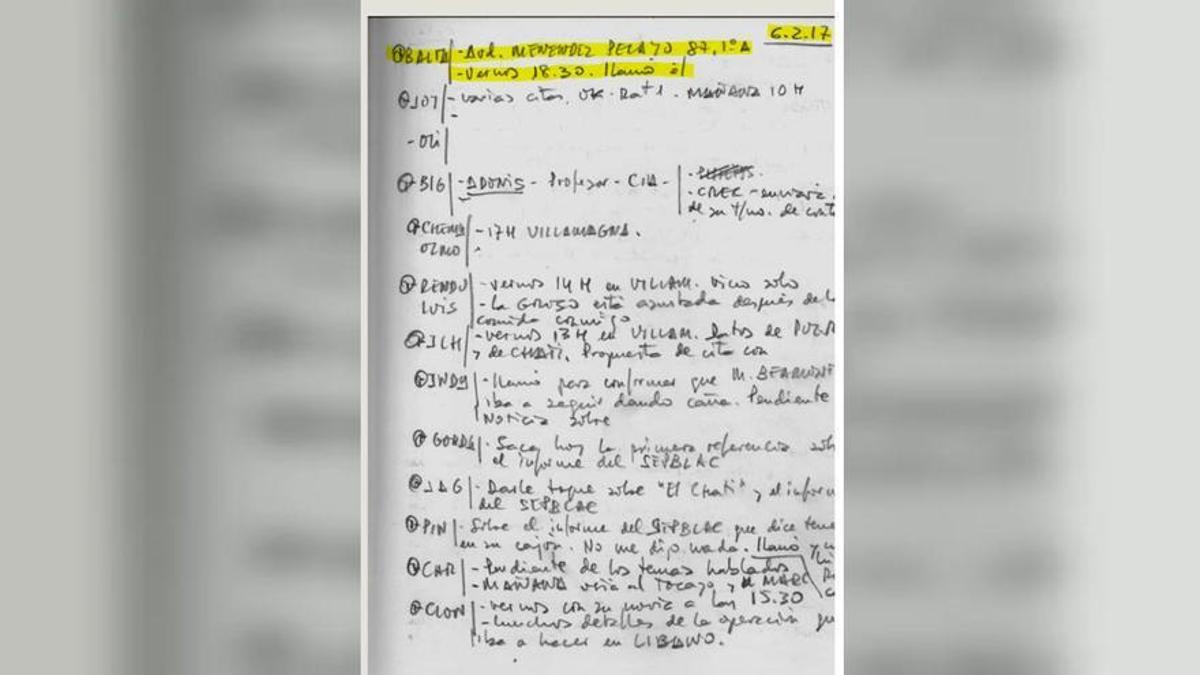 6.2.17
BALTA - Avd. MENENDEZ PELAYO 87, 1º A
- Vernos 18.30. Llamó él
JOT - varias citas. OK. MAÑANA 10 H
- Oli
BIG - ADONIS - Profesor - CIA -
- CREC - enviaría
de su t/no. de cont
CHEMA - 17H VILLAMAGNA.
OLMO
RENDU - vernos 14 H en VILLAM. Vino solo
LUIS - La GOROSO está asustada después de la
comida conmigo
ILH - vernos 13H en VILLAM. Datos de
y de CHATI. Propuesta de cita con
INDY - Llamó para confirmar que M.
iba a seguir dando caña. Pendiente
Noticia sobre
GORDA - Saca hoy la primera referencia sob
el informe del SEPBLAC
JAG - Darle toque sobre "El Chati" y el inform
del SEPBLAC
PIN - Sobre el informe del SEPBLAC que dice tene
en su cajón. No me dijo nada. Llamó y
CAR - Pendiente de los temas hablados
- MAÑANA vería al Tocayo y MARC
CLON - vernos con su novia a las 15.30
- Muchos detalles de la operación qu
iba a hacer en LIBANO.